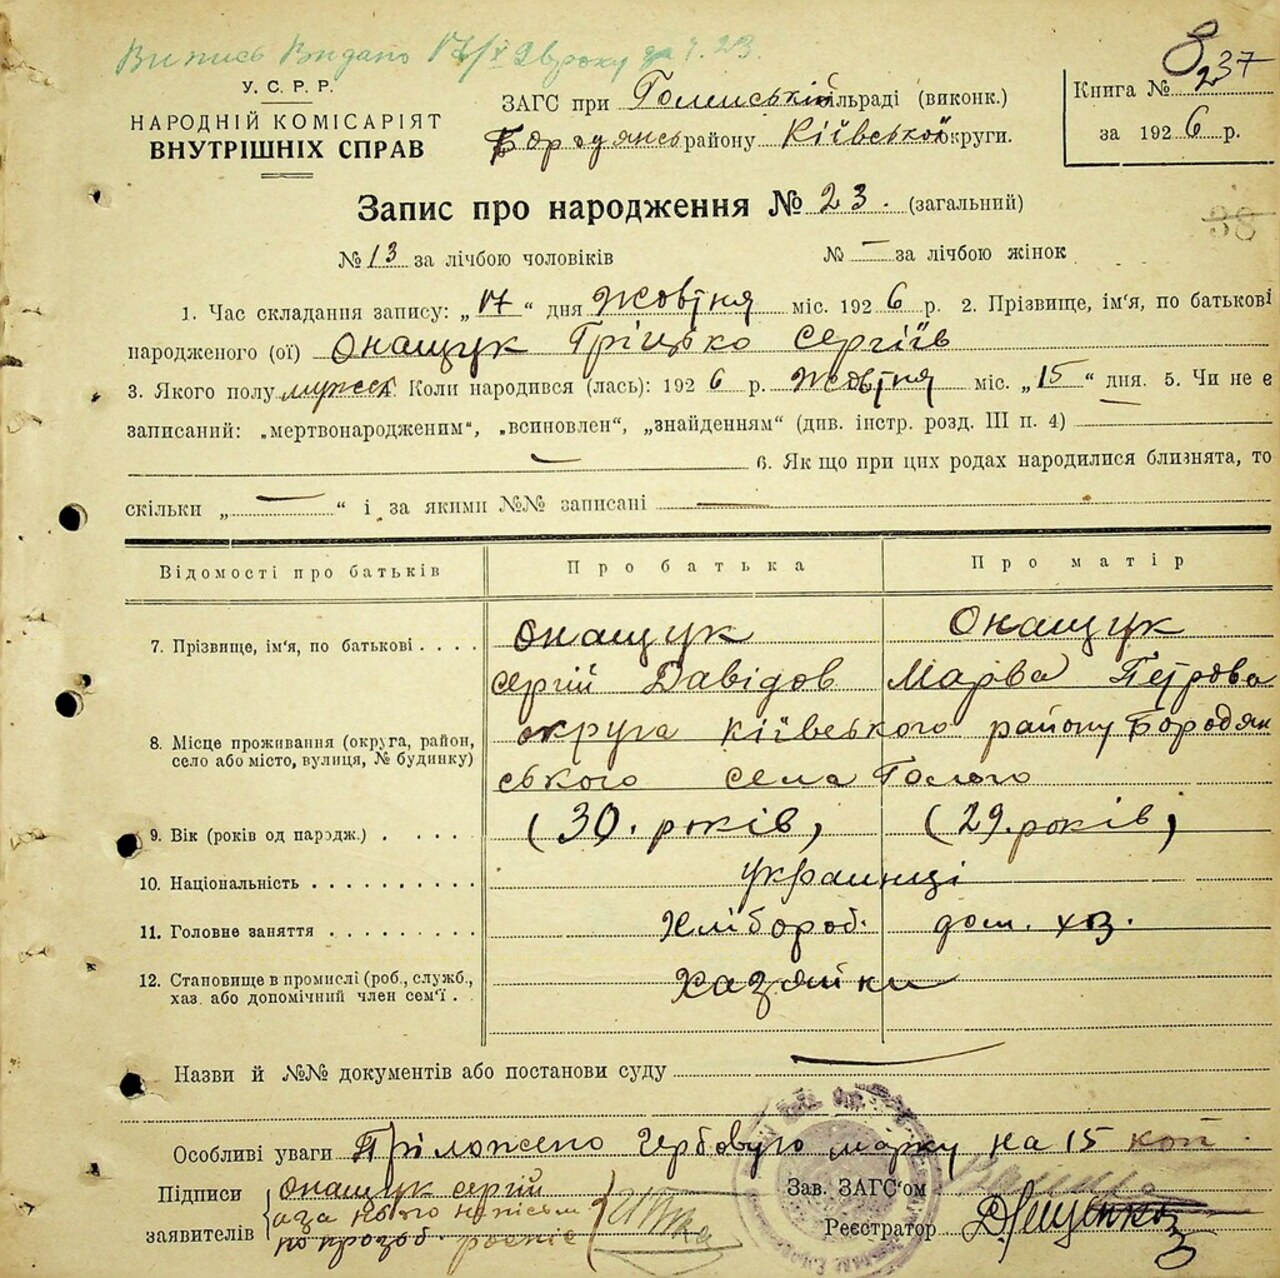 Випись Видано 17/X 26 року за ч. 23.
У. С. Р. Р.
НАРОДНІЙ КОМІСАРІЯТ
ВНУТРІШНІХ СПРАВ
ЗАГС при сільраді (виконк.)
Бородянськ району Кіївської округи.
Книга № 2
237
за 1926 р.
Запис про народження № 23. (загальний)
38
№ 13 за лічбою чоловіків № — за лічбою жінок
1. Час складання запису: „17“ дня Жовтня міс. 1926 р. 2. Прізвище, ім'я, по батькові
народженого (ої) Онащук Гріцько Сергіїв
3. Якого полу мужеск. Коли народився (лась): 1926 р. Жовтня міс. „15“ дня. 5. Чи не є
записаний: „мертвонародженим“, „всиновлен“, „знайденням“ (див. інстр. розд. III п. 4)
— 6. Як що при цих родах народилися близнята, то
скільки „—“ і за якими №№ записані —
Відомості про батьків Про батька Про матір
7. Прізвище, ім'я, по батькові . . . . Онащук Онащук
Сергій Давідов Марва Петрова
8. Місце проживання (округа, район, село або місто, вулиця, № будинку) округа Кіївського району Бородян
ського села Голого
9. Вік (років од народж.) . . . . . (30. років) (29. років)
10. Національність . . . . . . . . . . украинці
11. Головне заняття . . . . . . . . . Хлібороб. дом. хоз.
12. Становище в промислі (роб., служб., хаз. або допомічний член сем'ї . . Хазяйки
Назви й №№ документів або постанови суду —
Особливі уваги Пріложено гербовую марку на 15 коп.
Підписи Онащук Сергій
а за його
заявителів по прозб.
Зав. ЗАГС'ом
Реєстратор